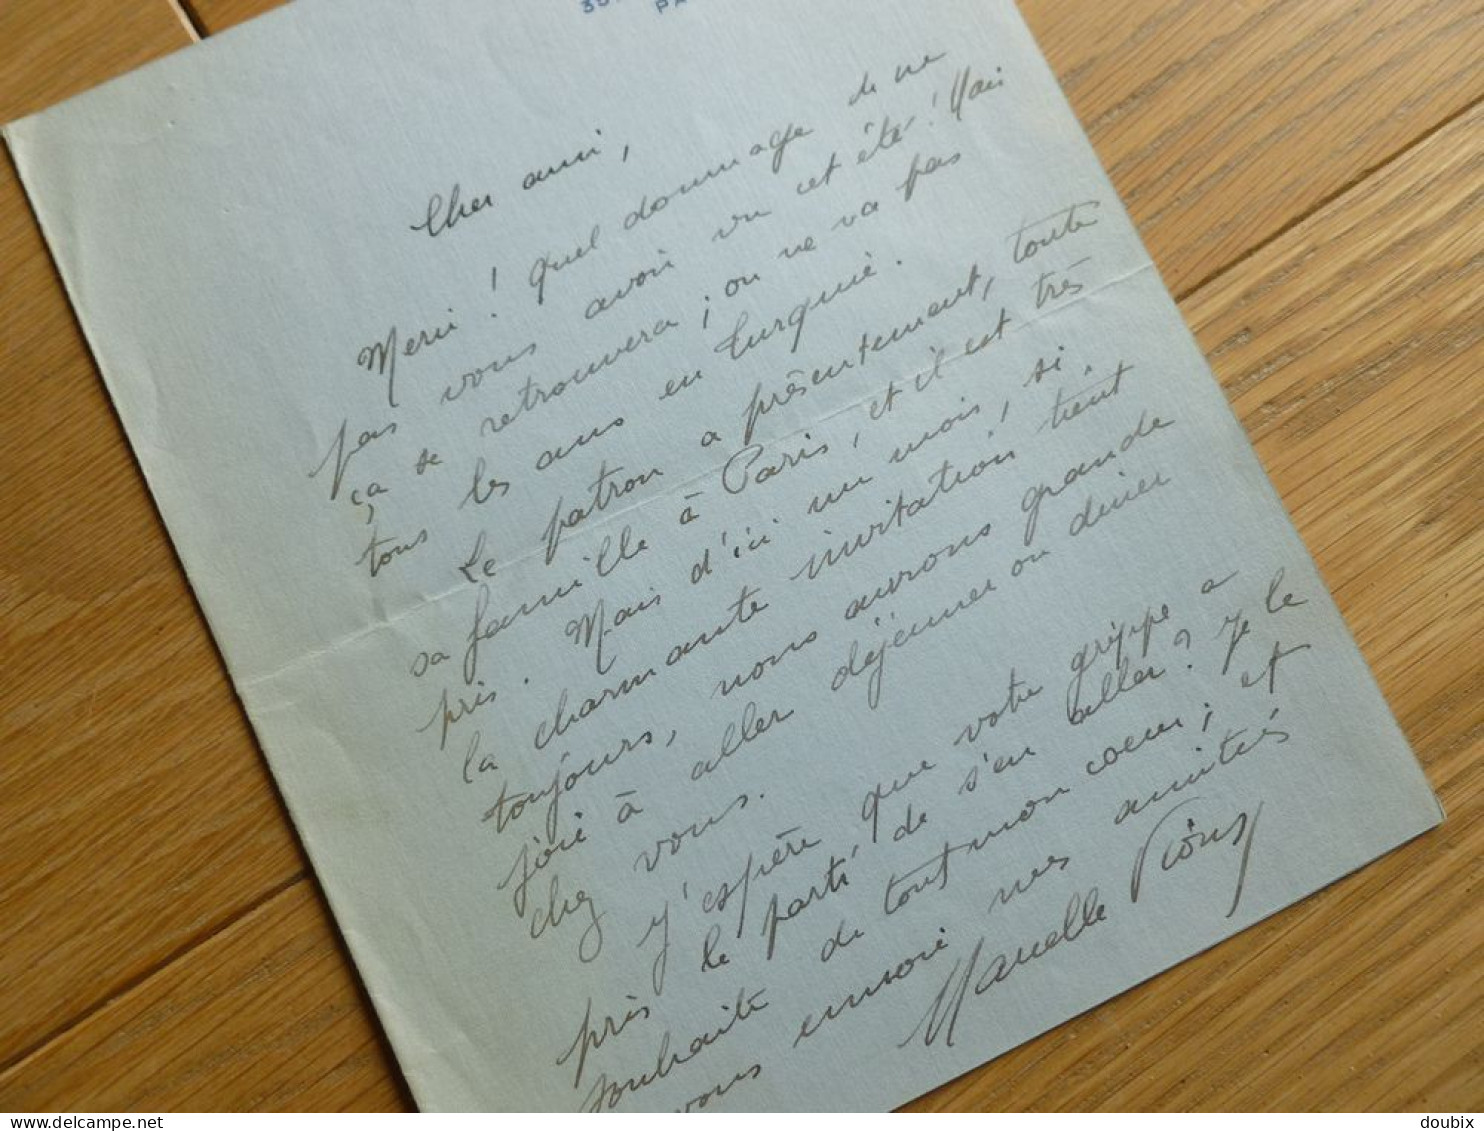 Cher ami,
Merci ! Quel dommage de ne
pas vous avoir vu cet été ! Mais
ça se retrouvera ; on ne va pas
tous les ans en Turquie.
Le patron a présentement, toute
sa famille à Paris, et il est très
pris. Mais d'ici un mois, si
la charmante invitation tient
toujours, nous aurons grande
joie à aller déjeuner ou diner
chez vous.
J'espère que votre grippe a
pris le parti de s'en aller ? Je le
souhaite de tout mon coeur ; et
vous envoie mes amitiés
Marcelle
delcampe.net
doubix